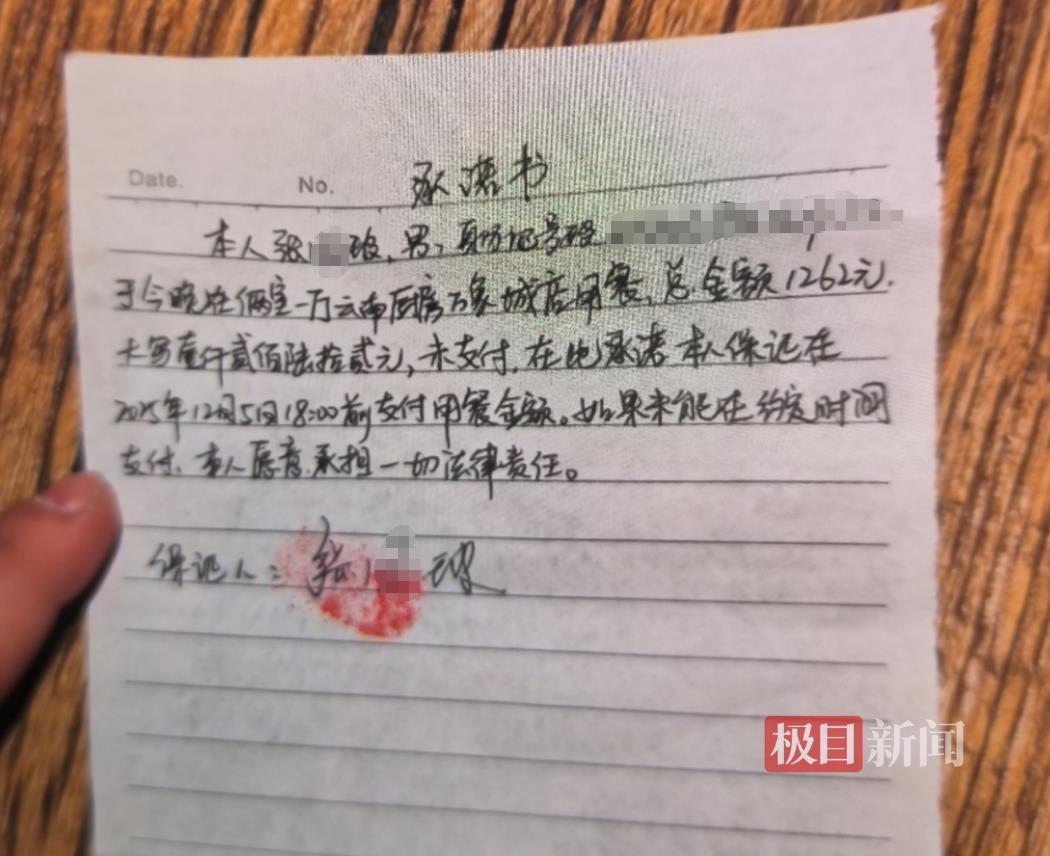 Date.
No.
承诺书
本人张 玻,男,身份证号码
于今晚在俩室一厅云南厨房万象城店用餐,总金额1262元.
大写壹仟贰佰陆拾贰元,未支付,在此承诺本人保证在
2025年12月5日18:00前支付用餐金额。如果未能在约定时间
支付,本人愿意承担一切法律责任。
保证人:张 玻
极目新闻